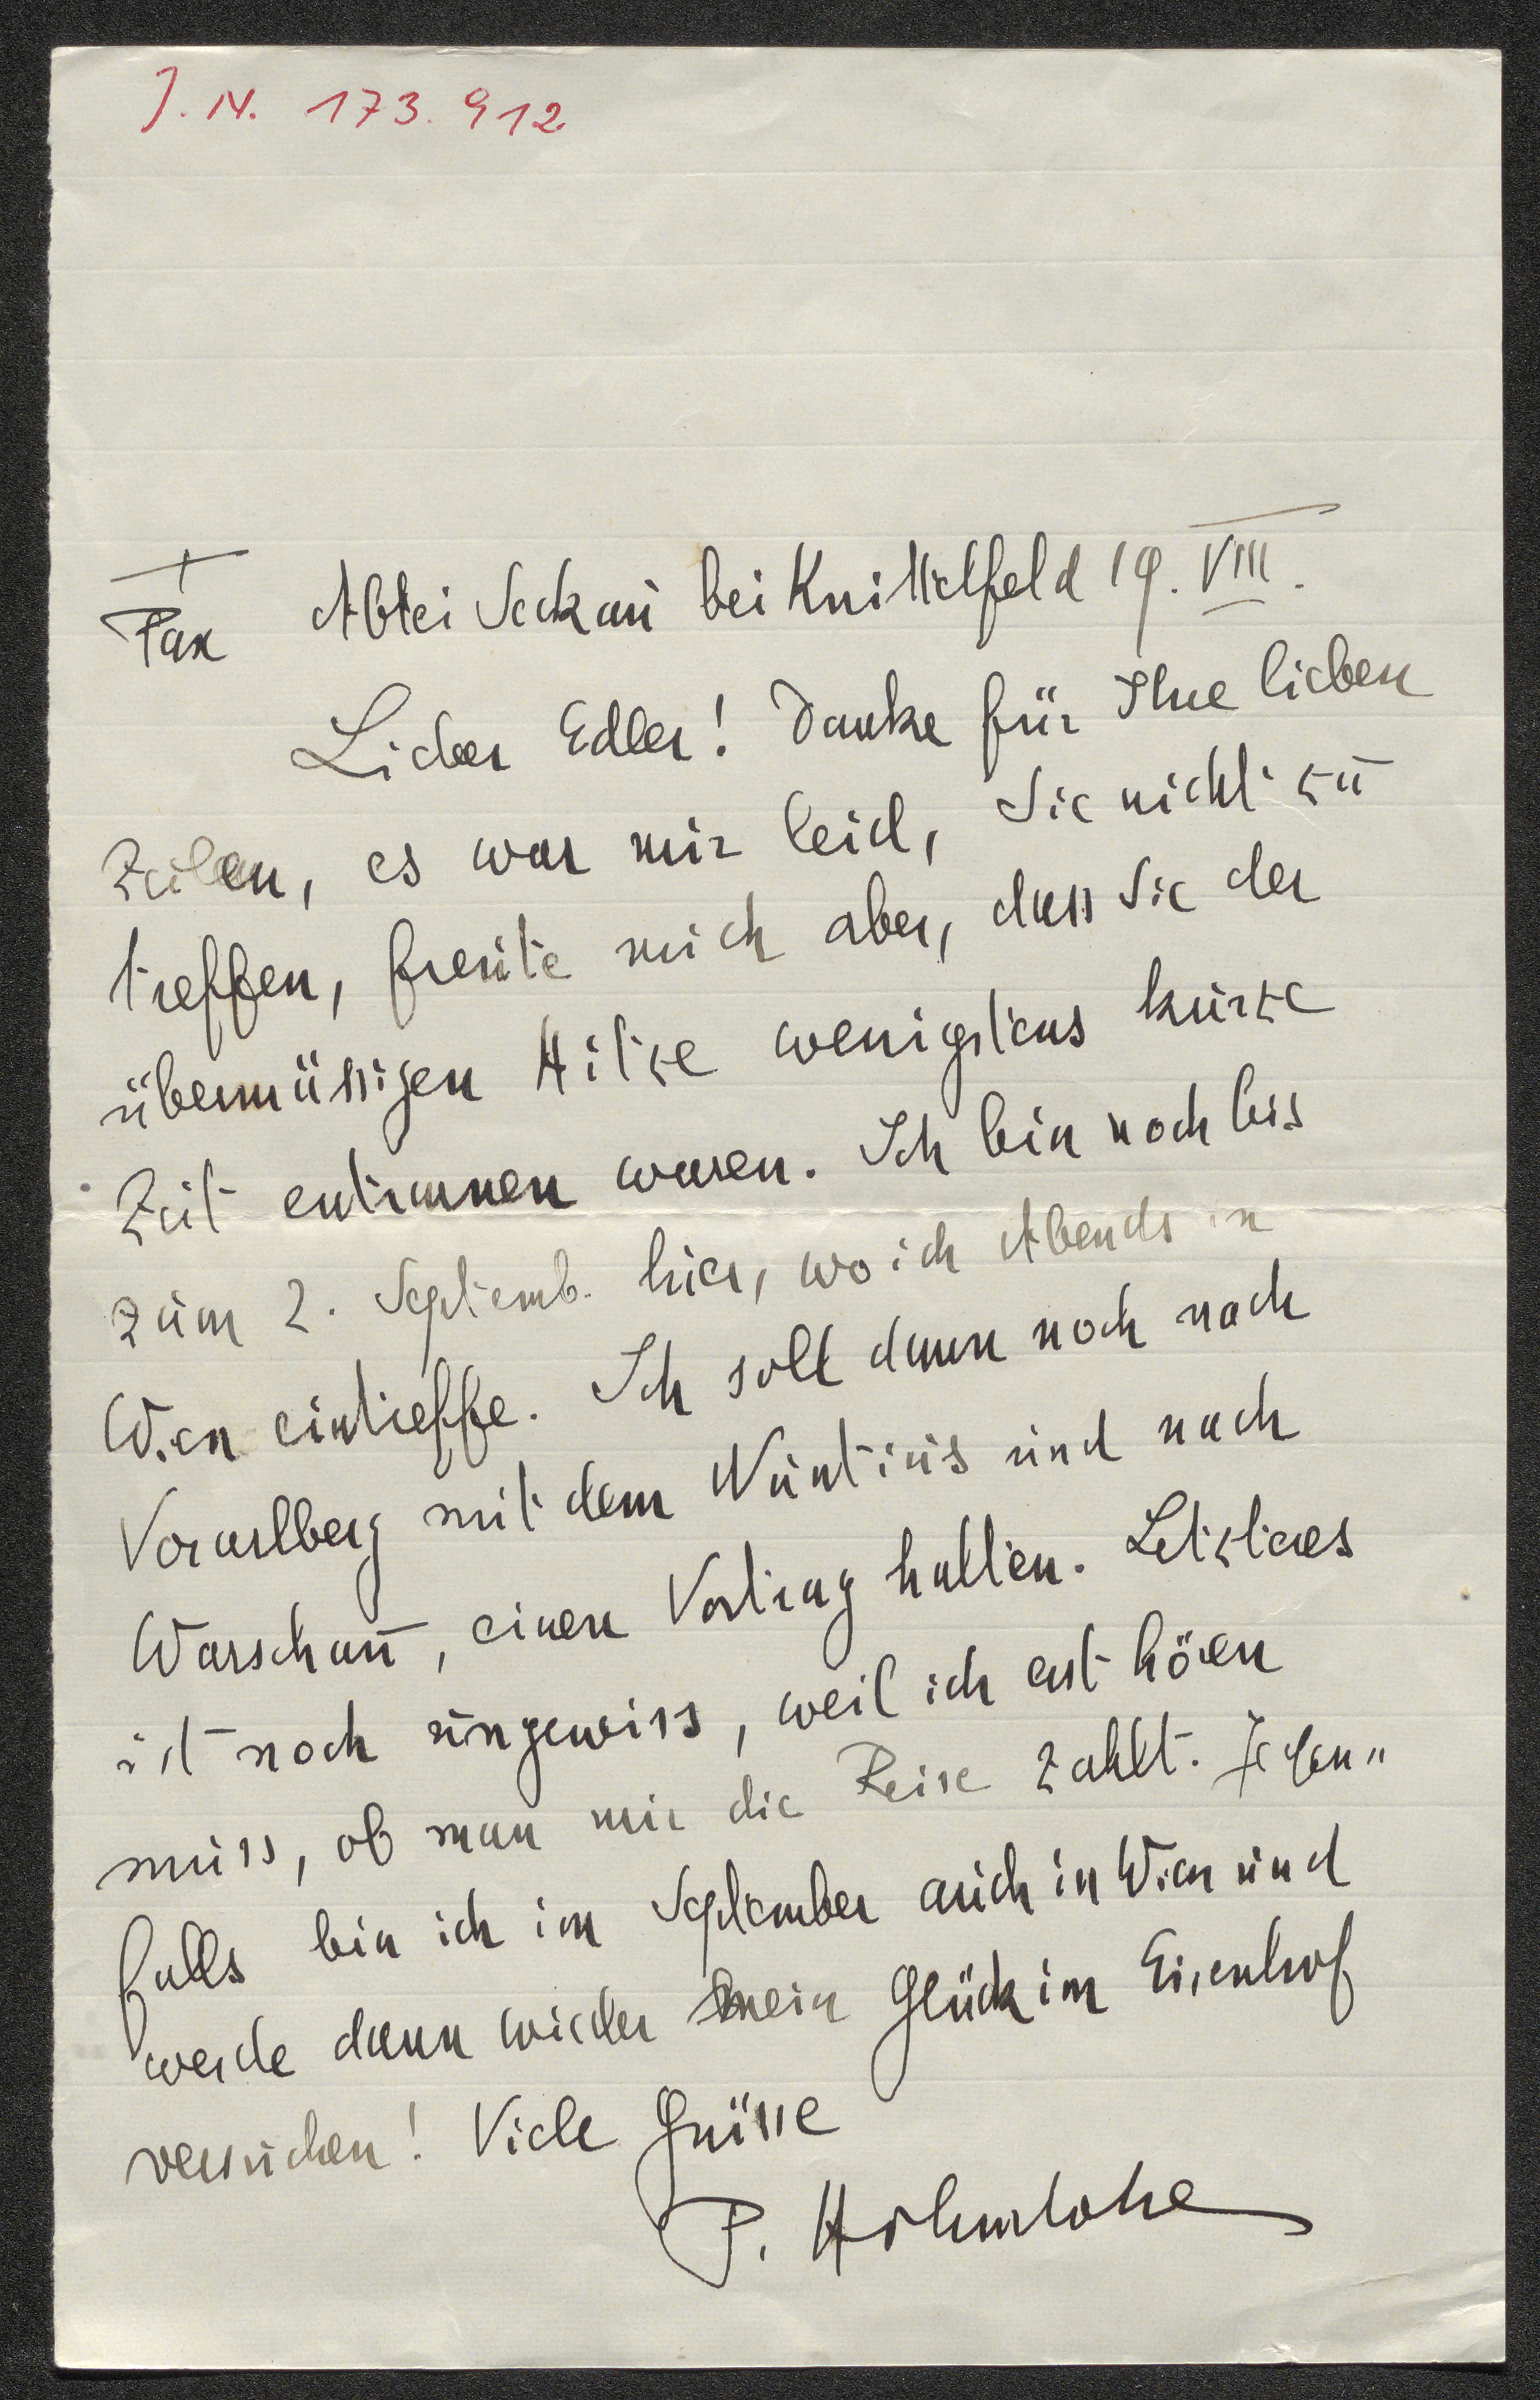 J. N. 173.912
+
Pax Abtei Seckau bei Knittelfeld 19. VIII.
Lieber Edler! Danke für Ihre lieben
Zeilen, es war mir leid, Sie nicht zu
treffen, freute mich aber, dass Sie der
übermässigen Hitze wenigstens kurze
Zeit entrannen waren. Ich bin noch bis
zum 2. Septemb. hier, wo ich Abends in
Wien eintreffe. Ich soll dann noch nach
Vorarlberg mit dem Nuntius und nach
Warschau, einen Vortrag halten. Letzteres
ist noch ungewiss, weil ich erst hören
muss, ob man mir die Reise zahlt. Jeden"
falls bin ich im September auch in Wien und
werde dann wieder mein Glück im Eisenhof
versuchen! Viele Grüsse
P. Hohenlohe